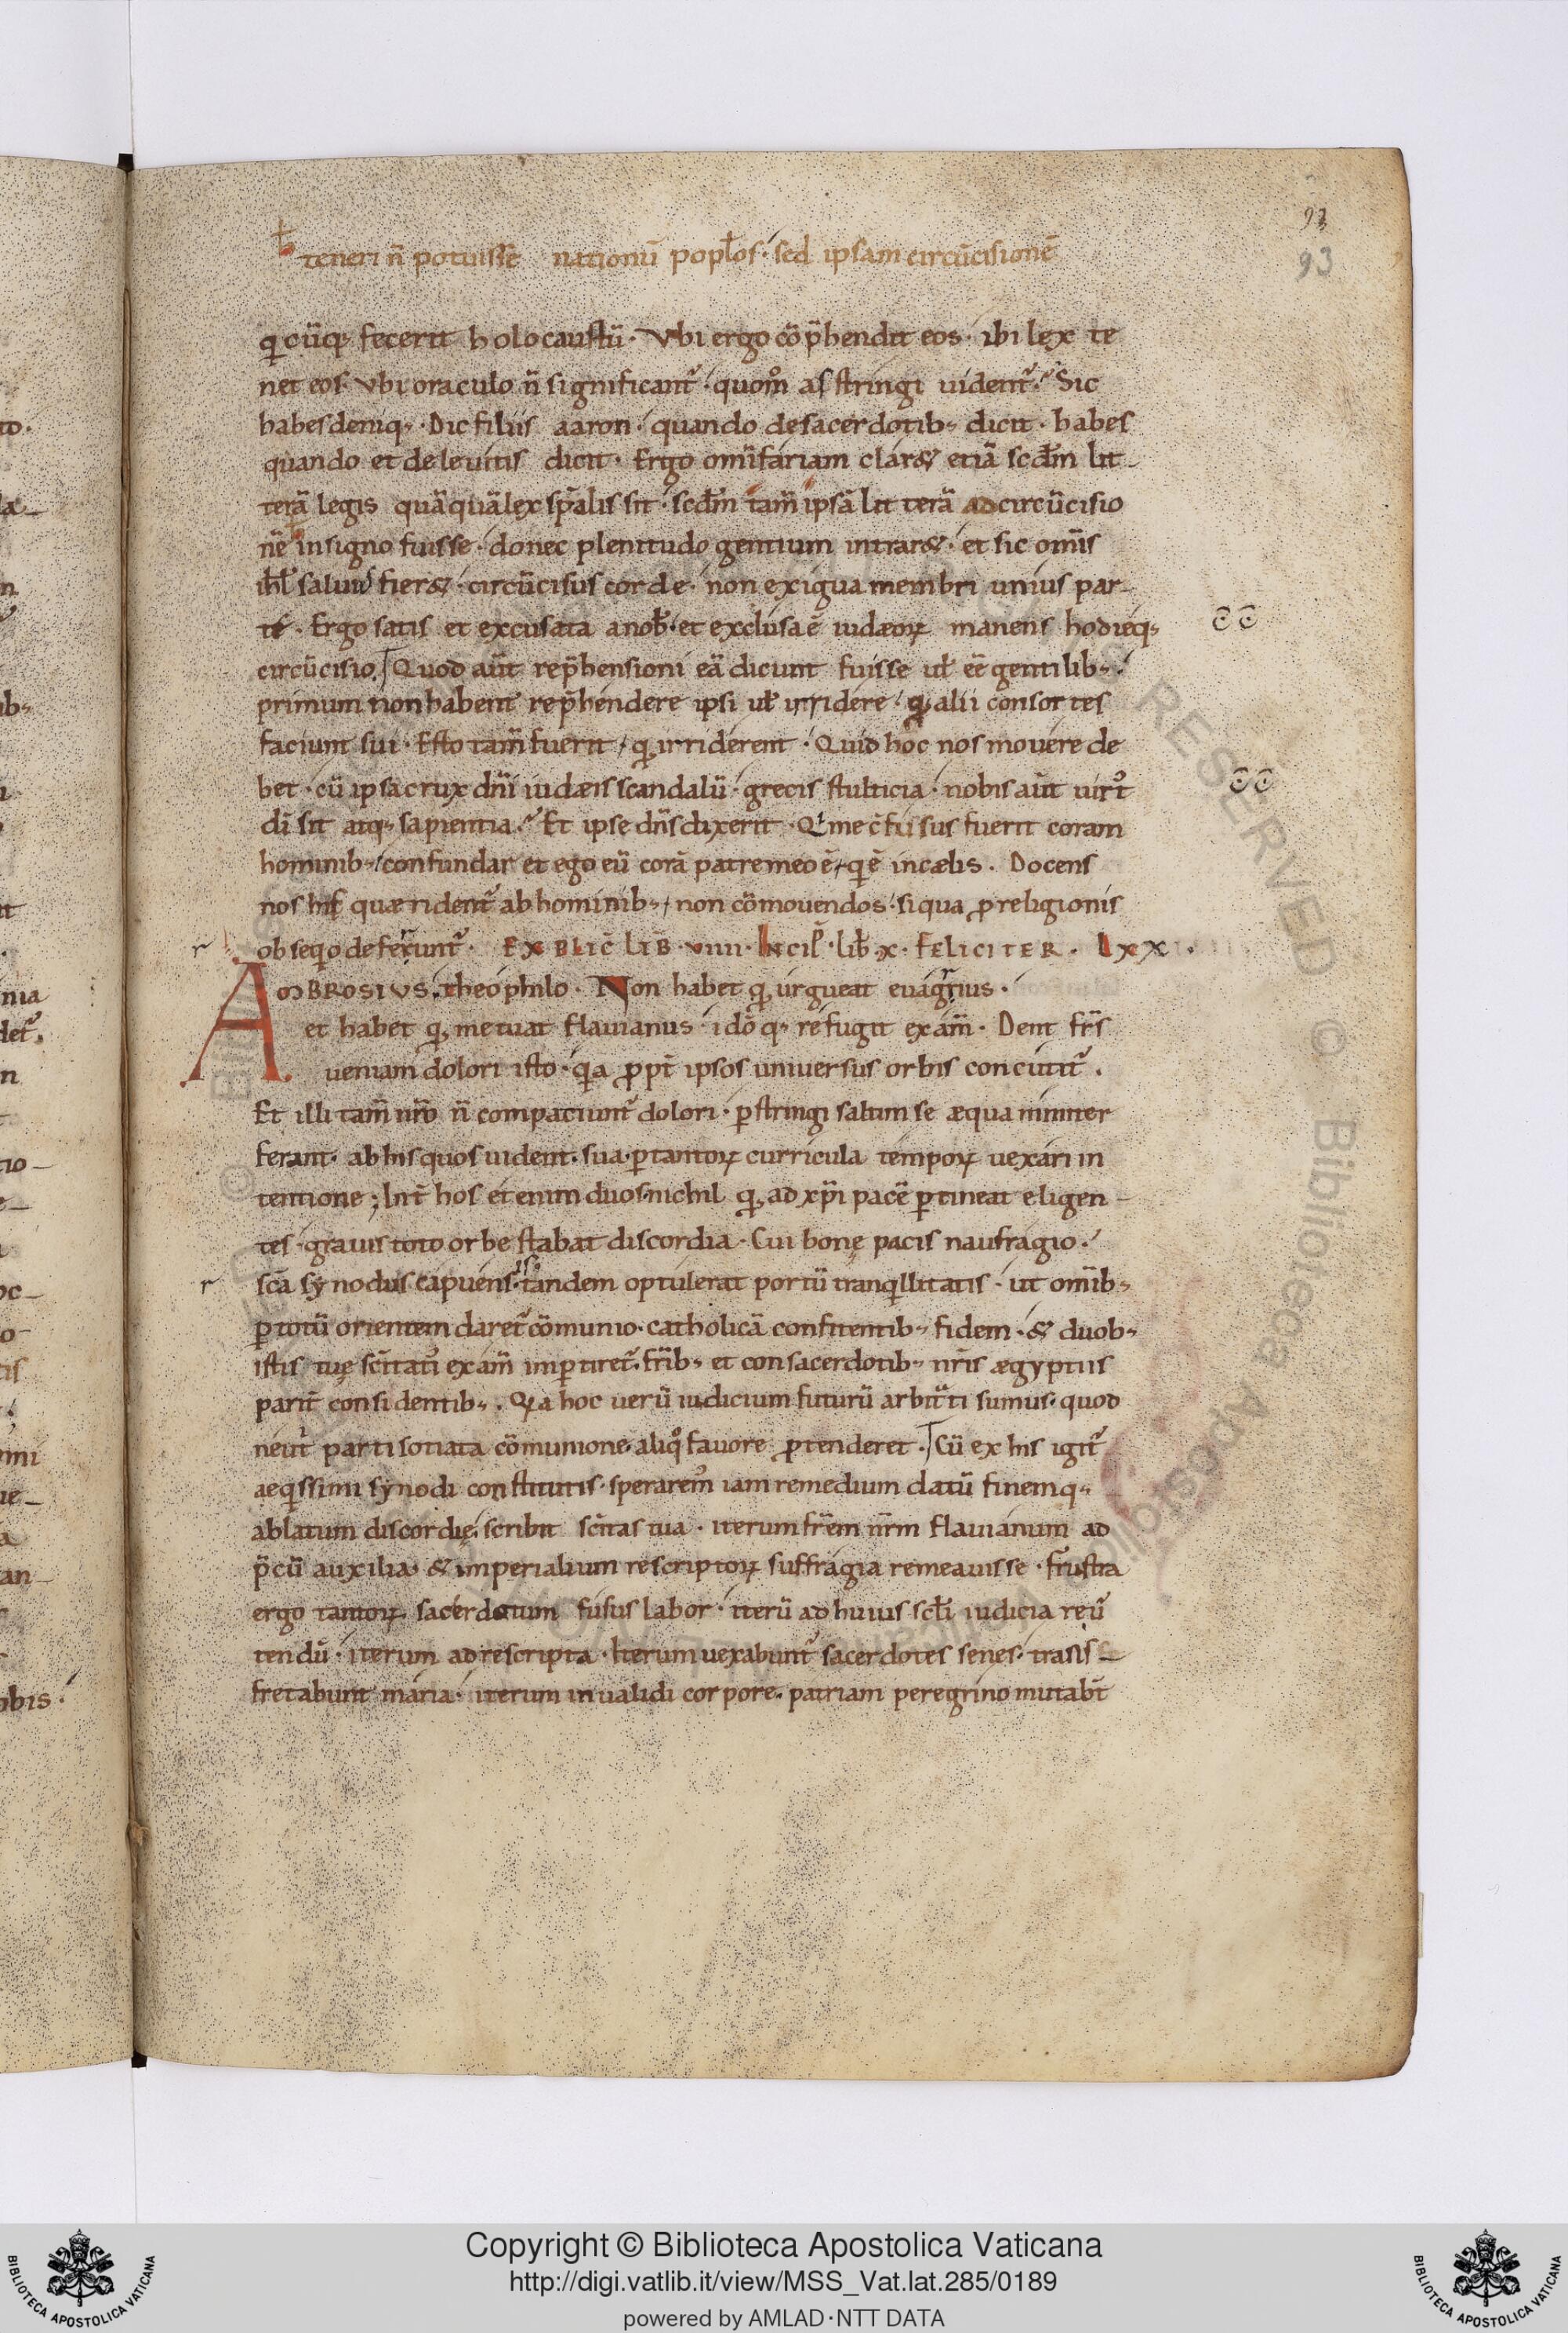 93
93
teneri n̄ potuisse nationū popl̄os· sed ipsam circūcisionē
qicūq; fecerit holocaustū· Vbi ergo cōp̄hendit eos· ibi lex te
net eos· Vbi oraculo n̄ significant᷑· quom̊ asstringi uident᷑· Sic
habes deniq;· Dic filiis aaron· quando de sacerdotib; dicit· habes
quando et de leuitis dicit· Ergo omīfariam clar& etiā scđm lit_
terā legis quāquā lex sp̄alis sit· scđm tam̄ ipsā litterā ad circūcisio
nē in signo fuisse· donec plenitudo gentium intrar&· et sic om̄is
ihl̄ saluus fier&· circūcisus corde· non exigua membri unius par_
te· Ergo satis et excusata a nob̄· et exclusa ē iudæoꝝ manens hodieq;
circūcisio· Quod aūt rep̄hensioni eā dicunt fuisse ul̄ eē gentilib;·
primum non habent rep̄hendere ipsi ul̄ irridere· qđ alii consortes
faciunt sui· Esto tam̄ fuerit, qđ irriderent· Quid hoc nos mouere de
bet· cū ipsa crux dn̄i iudæis scandalū· grecis stulticia· nobis aūt uirt᷑
dī sit atq; sapientia· Et ipse dn̄s dixerit· Qi me c̄fusus fuerit coram
hominib;· confundar et ego eū corā patre meo ē, qi ē in cælis· Docens
nos his quæ rident᷑ ab hominib;, non cōmouendos· si qua p̄ religionis
obseqio deferunt᷑· EXPLIC̄ LIB̄· VIIII· INCIP̄· lib̄· X· FELICITER· LXX·
AMBROSIVS theophilo· Non habet qđ urgueat euagrius·
et habet qđ metuat flauianus· idō q; refugit exam̄· Dent fr̄s
ueniam dolori isto· qia p̄pt̄ ipsos uniuersus orbis concutit᷑·
Et illi tam̄ nr̄o n̄ compatiunt᷑ dolori· ꝑstringi saltim se æquanimiter
ferant· ab his quos uident· sua ꝑ tantoꝝ curricula tempoꝝ uexari in
tentione; Int̄ hos etenim duos· nichil qđ ad xp̄i pacē ꝑtineat eligen_
tes· grauis toto orbe stabat discordia· Cui bonę pacis naufragio·
sc̄a synodus capuensis· tandem optulerat portū tranqillitatis· ut om̄ib;
ꝑ totū orientem daret᷑ cōmunio· catholicā confitentib; fidem· & duob;
istis tuę sc̄itati᷑ exam̄ imꝑtiret᷑· fr̄ib; et consacerdotib; nr̄is ægyptiis
parit̄ considentib;· Qia hoc uerū iudicium futurū arbitrati sumus· quod
neut̄ parti sotiata cōmunione· aliqo fauore p̄tenderet· Cū ex his igit᷑
aeqissimi synodi constitutis· sperarem᷑ iam remedium datū finemq;
ablatum discordię· scribit sc̄itas tua· iterum fr̄em nr̄m flauianum ad
p̄cū auxilia· & imperialium rescriptoꝝ suffragia remeauisse· frustra
ergo tantoꝝ sacerdotum fusus labor· iterū ad huius scl̄i iudicia reu᷑
tendū· iterum ad rescripta· Iterum uexabunt᷑ sacerdotes senes· trasis_
fretabunt maria· iterum inualidi corpore· patriam peregrino mutab̄t
Copyright © Biblioteca Apostolica Vaticana
http://digi.vatlib.it/view/MSS_Vat.lat.285/0189
powered by AMLAD·NTT DATA
BIBLIOTECA APOSTOLICA VATICANA
BIBLIOTECA APOSTOLICA VATICANA